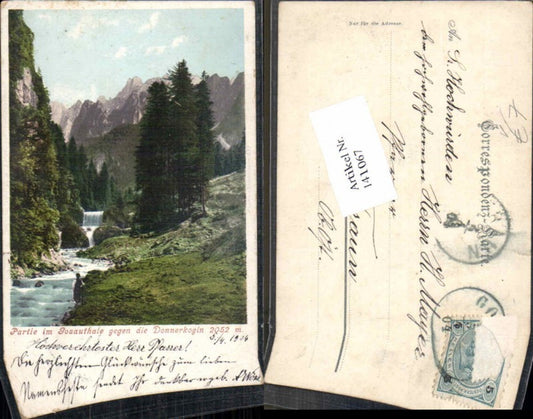 Partie im Gosauthale gegen die Donnerkogln 2052 m.
5/4. 1904
Hochverehrtester Herr Pfarrer!
Die herzlichsten Glückwünsche zum lieben
Namensfeste sendet Ihr dankbar ergeb.
Nur für die Adresse.
Correspondenz-Karte
An Sr. Hochwürden
dem hochwohlgeborenen Herrn H. Mayer
Pfarrer
Artikel Nr.
141067
GO
5